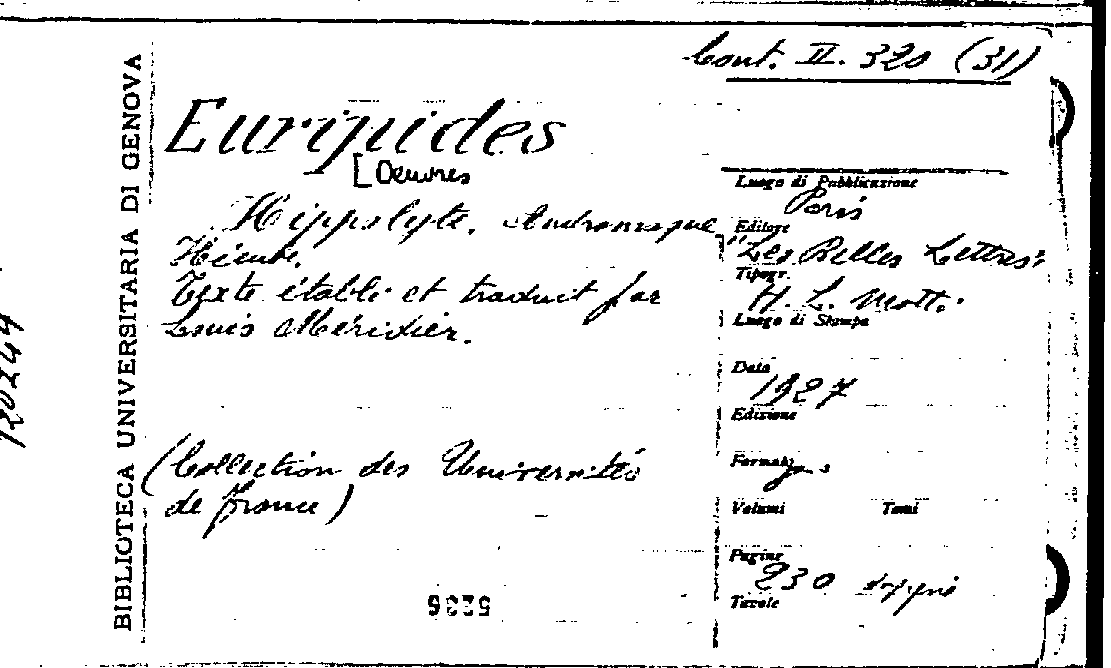 Cont. II. 320 (31)
BIBLIOTECA UNIVERSITARIA DI GENOVA
Euripides
[Oeuvres
Hippolyte, Andromaque,
Hécube.
Texte établi et traduit par
Louis Méridier.
(Collection des Universités
de France)
5236
Luogo di Pubblicazione
Paris
Editore
"Les Belles Lettres"
Tipogr.
H. L. Motti
Luogo di Stampa
Data
1927
Edizione
Formato
Volumi Tomi
Pagine
230
Tavole